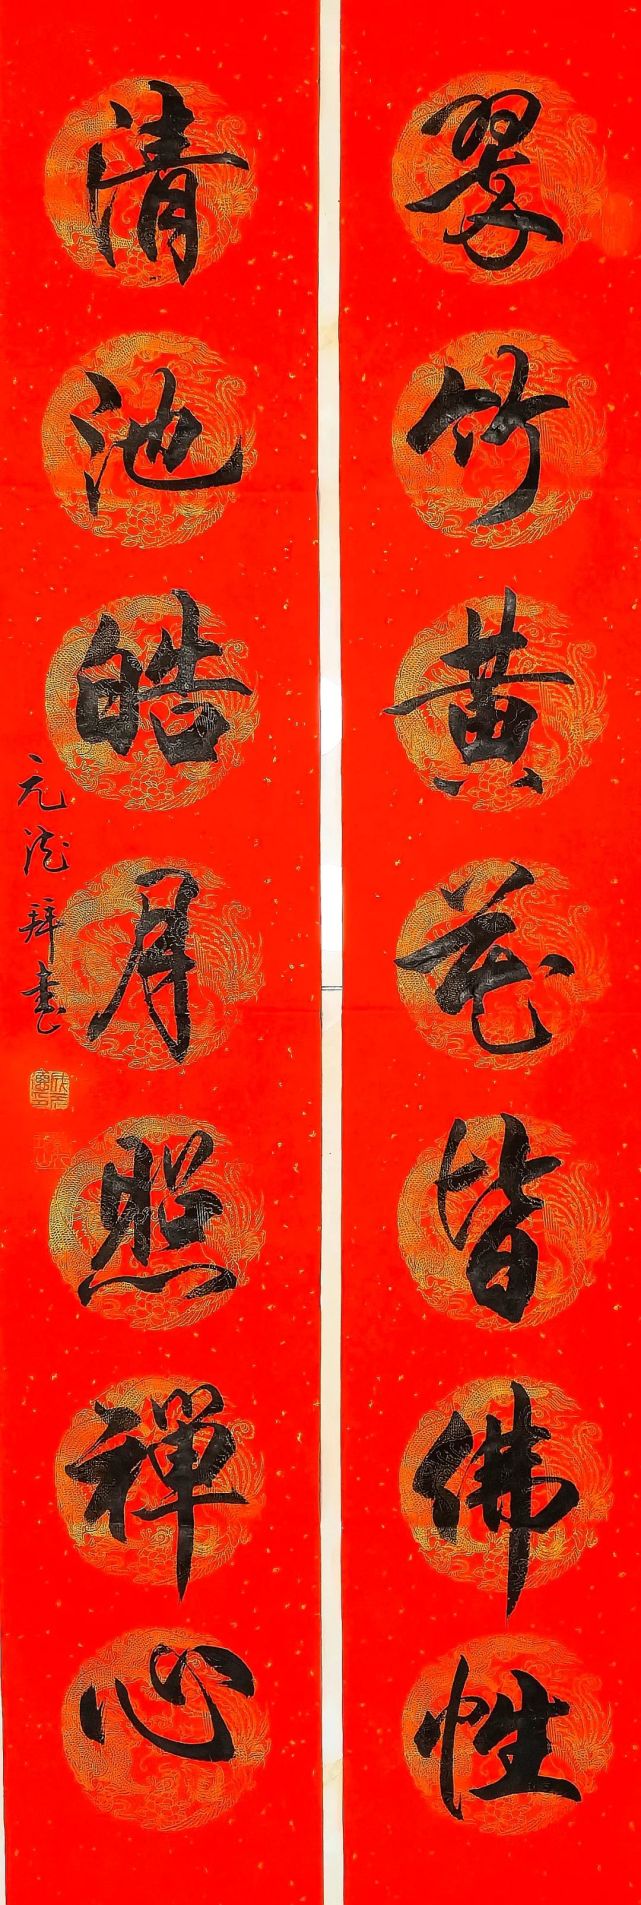 翠竹黄花皆佛性
清池皓月照禪心
元滗拜書